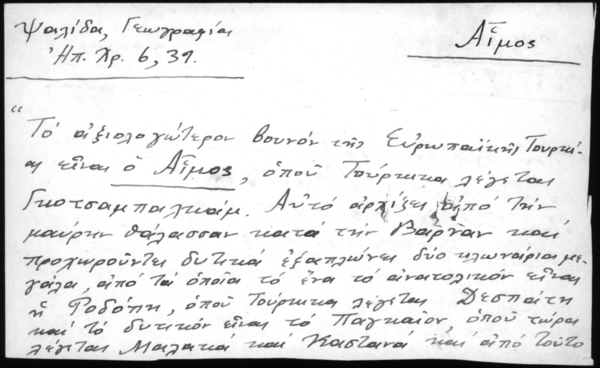 Ψαλίδα, Γεωγραφία
Αἷμος
Ἠπ. Χρ. 6, 39.
"
Τό ἀξιολογώτερον βουνόν τῆς Εὐρωπαϊκῆς Τουρκί-
ας εἶναι ὁ Αἷμος, ὁποῦ Τούρκικα λέγεται
Γκοτσαμπαλκάμ. Αὐτό ἀρχίζει ἀπό τήν
μαύρην θάλασσαν κατά τήν Βάρναν καί
προχωροῦντες δυτικά ἐξαπλώνει δύο κλωνάρια με-
γάλα, ἀπό τά ὁποῖα τό ἕνα τό ἀνατολικόν εἶναι
ἡ Ροδόπη, ὁποῦ Τούρκικα λέγεται Δεσπαίτη
καί τό δυτικόν εἶναι τό Παγκαῖον ὁποῦ τώρα
λέγεται Μαλακά καί Καστανά καί ἀπό τοῦτο